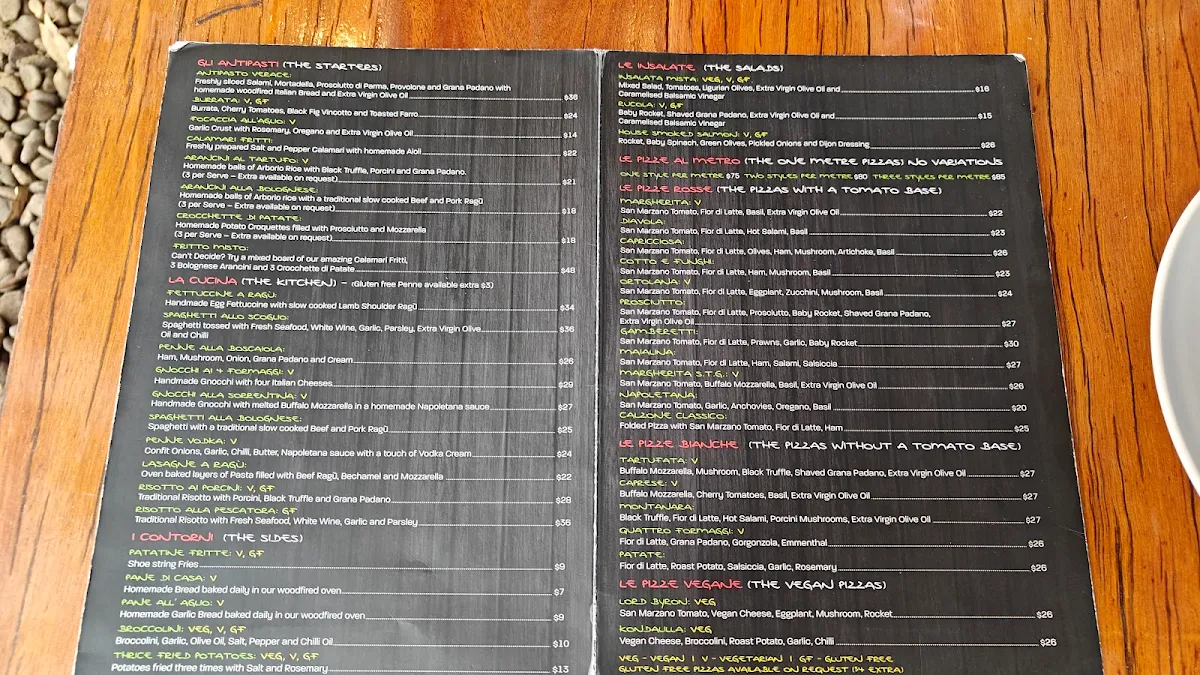 GLI ANTIPASTI (THE STARTERS)
ANTIPASTO VERACE:
Freshly sliced Salami, Mortadella, Prosciutto di Parma, Provolone and Grana Padano with
homemade woodfired Italian Bread and Extra Virgin Olive Oil $36
BURRATA: V, GF
Burrata, Cherry Tomatoes, Black Fig Vincotto and Toasted Farro $24
FOCACCIA ALL'AGLIO: V
Garlic Crust with Rosemary, Oregano and Extra Virgin Olive Oil $14
CALAMARI FRITTI:
Freshly prepared Salt and Pepper Calamari with homemade Aioli $22
ARANCINI AL TARTUFO: V
Homemade balls of Arborio Rice with Black Truffle, Porcini and Grana Padano.
(3 per Serve - Extra available on request) $21
ARANCINI ALLA BOLOGNESE:
Homemade balls of Arborio rice with a traditional slow cooked Beef and Pork Ragū
(3 per Serve - Extra available on request) $18
CROCCHETTE DI PATATE:
Homemade Potato Croquettes filled with Prosciutto and Mozzarella
(3 per Serve - Extra available on request) $18
FRITTO MISTO:
Can't Decide? Try a mixed board of our amazing Calamari Fritti,
3 Bolognese Arancini and 3 Crocchette di Patate $48
LA CUCINA (THE KITCHEN) - (Gluten free Penne available extra $3)
FETTUCCINE A RAGÙ:
Handmade Egg Fettuccine with slow cooked Lamb Shoulder Ragū $34
SPAGHETTI ALLO SCOGLIO:
Spaghetti tossed with Fresh Seafood, White Wine, Garlic, Parsley, Extra Virgin Olive $36
Oil and Chilli
PENNE ALLA BOSCAIOLA:
Ham, Mushroom, Onion, Grana Padano and Cream $26
GNOCCHI AI 4 FORMAGGI: V
Handmade Gnocchi with four Italian Cheeses $29
GNOCCHI ALLA SORRENTINA: V
Handmade Gnocchi with melted Buffalo Mozzarella in a homemade Napoletana sauce $27
SPAGHETTI ALLA BOLOGNESE:
Spaghetti with a traditional slow cooked Beef and Pork Ragū $25
PENNE VODKA: V
Confit Onions, Garlic, Chilli, Butter, Napoletana sauce with a touch of Vodka Cream $24
LASAGNE A RAGÙ:
Oven baked layers of Pasta filled with Beef Ragū, Bechamel and Mozzarella $22
RISOTTO AI PORCINI: V, GF
Traditional Risotto with Porcini, Black Truffle and Grana Padano $28
RISOTTO ALLA PESCATORA: GF
Traditional Risotto with Fresh Seafood, White Wine, Garlic and Parsley $36
I CONTORNI (THE SIDES)
PATATINE FRITTE: V, GF
Shoe string Fries $9
PANE DI CASA: V
Homemade Bread baked daily in our woodfired oven $7
PANE ALL' AGLIO: V
Homemade Garlic Bread baked daily in our woodfired oven $9
BROCCOLINI: VEG, V, GF
Broccolini, Garlic, Olive Oil, Salt, Pepper and Chilli Oil $10
THRICE FRIED POTATOES: VEG, V, GF
Potatoes fried three times with Salt and Rosemary $13
LE INSALATE (THE SALADS)
INSALATA MISTA: VEG, V, GF.
Mixed Salad, Tomatoes, Ligurian Olives, Extra Virgin Olive Oil and $16
Caramelised Balsamic Vinegar
RUCOLA: V, GF
Baby Rocket, Shaved Grana Padano, Extra Virgin Olive Oil and $15
Caramelised Balsamic Vinegar
HOUSE SMOKED SALMON: V, GF
Rocket, Baby Spinach, Green Olives, Pickled Onions and Dijon Dressing $26
LE PIZZE AL METRO (THE ONE METRE PIZZAS) NO VARIATIONS
ONE STYLE PER METRE $75 TWO STYLES PER METRE $80 THREE STYLES PER METRE $85
LE PIZZE ROSSE (THE PIZZAS WITH A TOMATO BASE)
MARGHERITA: V
San Marzano Tomato, Fior di Latte, Basil, Extra Virgin Olive Oil $22
DIAVOLA:
San Marzano Tomato, Fior di Latte, Hot Salami, Basil $23
CAPRICCIOSA:
San Marzano Tomato, Fior di Latte, Olives, Ham, Mushroom, Artichoke, Basil $26
COTTO E FUNGHI:
San Marzano Tomato, Fior di Latte, Ham, Mushroom, Basil $23
ORTOLANA: V
San Marzano Tomato, Fior di Latte, Eggplant, Zucchini, Mushroom, Basil $24
PROSCIUTTO:
San Marzano Tomato, Fior di Latte, Prosciutto, Baby Rocket, Shaved Grana Padano,
Extra Virgin Olive Oil $27
GAMBERETTI:
San Marzano Tomato, Fior di Latte, Prawns, Garlic, Baby Rocket $30
MAIALINA:
San Marzano Tomato, Fior di Latte, Ham, Salami, Salsiccia $27
MARGHERITA S.T.G.: V
San Marzano Tomato, Buffalo Mozzarella, Basil, Extra Virgin Olive Oil $26
NAPOLETANA:
San Marzano Tomato, Garlic, Anchovies, Oregano, Basil $20
CALZONE CLASSICO:
Folded Pizza with San Marzano Tomato, Fior di Latte, Ham $25
LE PIZZE BIANCHE (THE PIZZAS WITHOUT A TOMATO BASE)
TARTUFATA: V
Buffalo Mozzarella, Mushroom, Black Truffle, Shaved Grana Padano, Extra Virgin Olive Oil $27
CAPRESE: V
Buffalo Mozzarella, Cherry Tomatoes, Basil, Extra Virgin Olive Oil $27
MONTANARA:
Black Truffle, Fior di Latte, Hot Salami, Porcini Mushrooms, Extra Virgin Olive Oil $27
QUATTRO FORMAGGI: V
Fior di Latte, Grana Padano, Gorgonzola, Emmenthal $26
PATATE:
Fior di Latte, Roast Potato, Salsiccia, Garlic, Rosemary $26
LE PIZZE VEGANE (THE VEGAN PIZZAS)
LORD BYRON: VEG
San Marzano Tomato, Vegan Cheese, Eggplant, Mushroom, Rocket $26
KONDALILLA: VEG
Vegan Cheese, Broccolini, Roast Potato, Garlic, Chilli $26
VEG - VEGAN | V - VEGETARIAN | GF - GLUTEN FREE
GLUTEN FREE PIZZAS AVAILABLE ON REQUEST ($4 EXTRA)